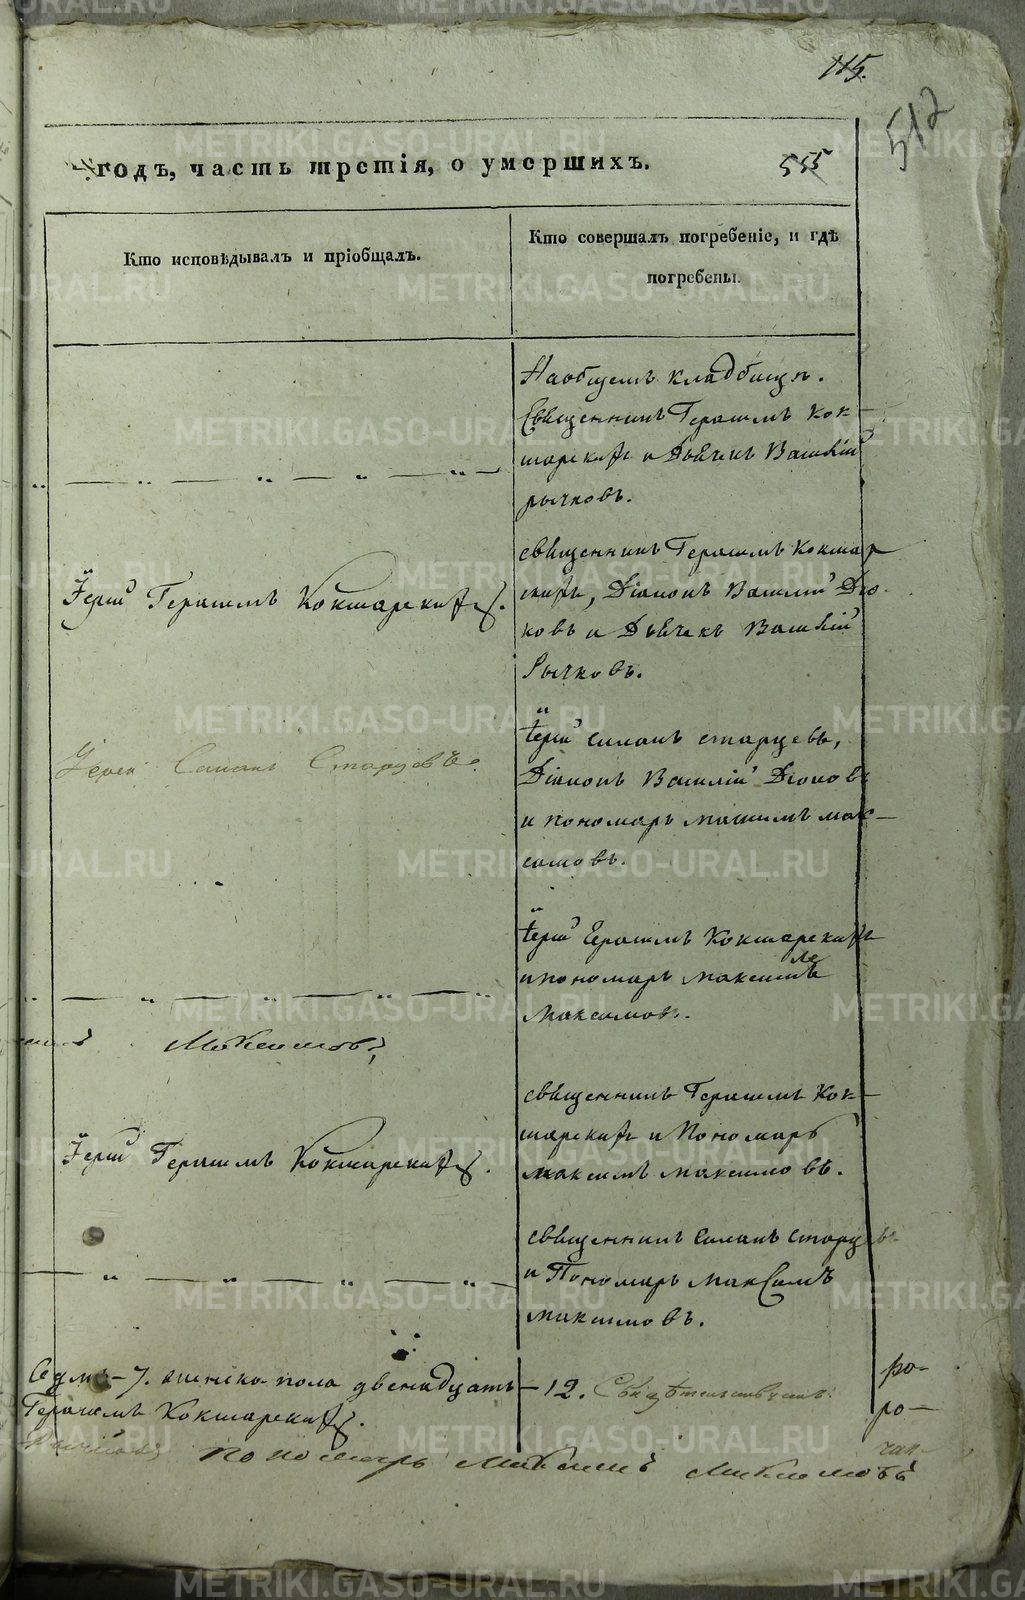 115.
512
годъ, часть третія, о умершихъ.
555
Кто исповѣдывалъ и пріобщалъ.
Кто совершалъ погребеніе, и гдѣ
погребены.
На общемъ кладбищѣ.
Священникъ Герасимъ Кок-
шарскихъ и Дьячекъ Василій
Рычковъ.
священникъ Герасимъ Кокшар
скихъ, Діаконъ Василій Дю-
ковъ и Дьячекъ Василій
Рычковъ.
Іерей Герасимъ Кокшарскихъ.
Іерей Симонъ Старцевъ,
Діаконъ Василій Дюковъ
и пономарь максимъ мак-
симовъ.
Іерей Симонъ Старцевъ.
Іерей Герасимъ Кокшарскихъ
и пономарь максимъ
Максимовъ.
Максимовъ
священникъ Герасимъ Кок-
шарскихъ и Пономарь
максимъ максимовъ.
Іерей Герасимъ Кокшарскихъ.
священникъ Симонъ Старцевъ
и Пономарь максимъ
максимовъ.
Седмь - 7. женска пола двенадцать - 12. Свидѣтельствуемъ:
Герасимъ Кокшарскихъ.
Пономарь Максимъ Максимовъ
ро-
ро-
METRIKI.GASO-URAL.RU